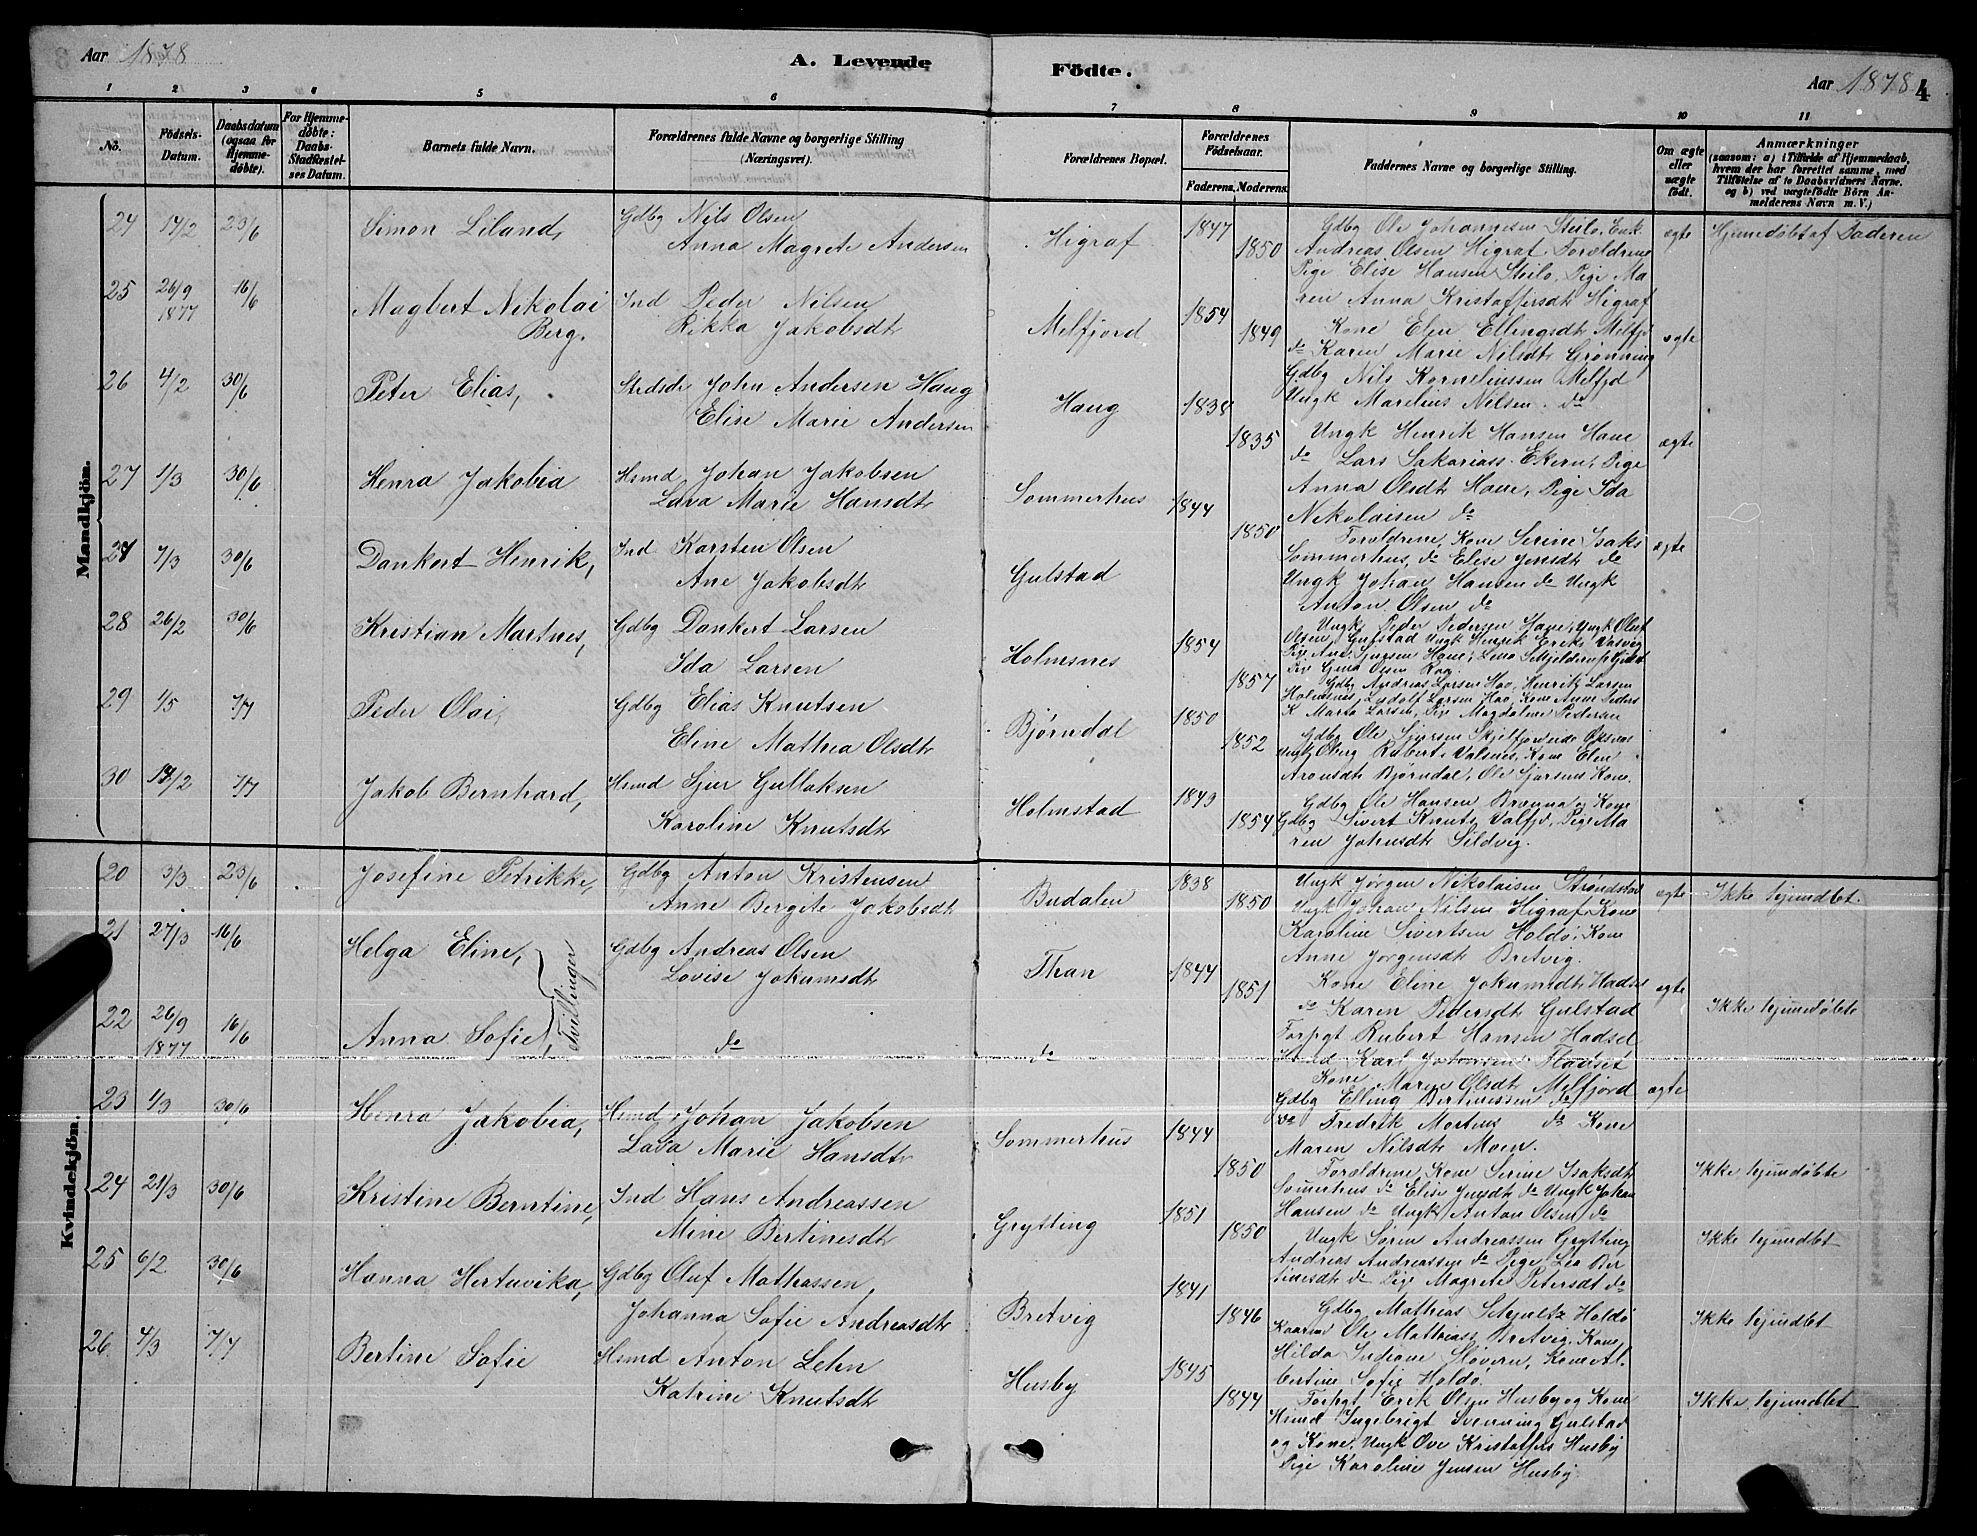 Aar 1878
A. Levende Födte.
Aar 1878. 4
1 2 3 4 5 6 7 8 9 10 11
No.
Födsels-Datum.
Daabsdatum (ogsaa for Hjemme-döbte).
For Hjemme-döbte: Daabs-Stadfæstel-ses Datum.
Barnets fulde Navn.
Forældrenes fulde Navne og borgerlige Stilling (Næringsvei).
Forældrenes Bopæl.
Forældrenes Födselsaar.
Faderens. Moderens.
Faddernes Navne og borgerlige Stilling.
Om ægte eller uægte födt.
Anmærkninger
(saasom: a) i Tilfælde af Hjemmedaab, hvem der har forrettet samme, med Tilföielse af to Daabsvidners Navne, og b) ved uægtefödte Börn An-melderens Navn m. V.)
Mandkjön.
24 17/2 23/6 Simon Liland, Gdbg Nils Olsen
Anna Magrete Andersen
Higraf 1847 1850
Gdbg Ole Johannesen Steilo, Enk.
Andreas Olsen Higraf Forældrene
Pige Elise Hansen Steilo, Pige Ma
ren Anna Kristoffersdtr Higraf
ægte Hjemedøbt af Faderen
25 26/9 1877 16/6 Magbert Nikolai Berg. Ind Peder Nilsen
Rikka Jakobsdtr
Melfjord 1854 1849
Kone Elen Ellingsdtr Melfjd
do Karen Marie Nilsdtr Grønning
Gdbg Nils Korneliussen Melfjd
Ungk Marelius Nilsen do
ægte
26 4/2 30/6 Peter Elias, John Andersen Haug
Elise Marie Andersen
Haug 1838 1835
Ungk Henrik Hansen Haue
do Lars Sakariass. Ekern, Pige
Anna Olsdtr Haue, Pige Ida
Nikolaisen do
ægte
27 1/3 30/6 Henra Jakobia Hsmd Johan Jakobsen
Lava Marie Hansdtr
Sommerhus 1844 1850
Forældrene, Kone Serine Isaks
Sommerhus, do Elise Jensdtr do
Ungk Johan Hansen do Ungk
Anton Olsen do
ægte
27 7/3 30/6 Dankert Henrik, Ind Karsten Olsen
Ane Jakobsdtr
Gulstad
Ungk Peder Pedersen Haue, Ungk Oluf
Olsen, Gulstad Ungk Henrik Eriks
28 26/2 30/6 Kristian Martnes, Gdbg Dankert Larsen
Ida Larsen
Holmsnes 1854 1857
Gdbg Andreas Larsen Hav, Henrik Larsen
Holmsnes, Ludolf Larsen Hav, Kone Anne Peders
K Marta Larsen, Pige Magdalene Pedersen
29 1/5 7/7 Peder Olai, Gdbg Elias Knutsen
Eline Mathea Olsdtr
Bjørndal 1850 1852
Gdbg Ole Sjursen
Ungk Oberg Rubert Valsnes, Kone Elen
Aronsdtr Bjørndal, Ole Sjursens Kone.
30 17/2 7/7 Jakob Bernhard, Hsmd Sjur Gullaksen
Karoline Knutsdtr
Holmstad 1843 1854
Gdbg Ole Hansen Brenna og Kone
Gdbg Sivert Knuts. Valfjd, Pige Ma
ren Johnsdtr Sildvig.
Kvindekjön.
20 3/3 23/6 Josefine Petrikke, Gdbg Anton Kristensen
Anne Bergete Jakobsdtr
Budalen 1838 1850
Ungk Jørgen Nikolaisen Strøndstad
Ungk Johan Nilsen Higraf, Kone
Karoline Sivertsen Holdø, Kone
Anne Jørgensdtr Bretvig.
ægte Ikke hjemdbt.
21 27/3 16/6 Helga Eline, Tvillinger Gdbg Andreas Olsen
Lovise Jokumsdtr
Than 1844 1851
Kone Eline Jokumsdtr Hadsel
do Karen Pedersdtr Gulstad
Forpgt Rubert Hansen Hadsel
Hsmd Karl Johansen Fladset
ægte Ikke hjemedøbte
22 26/9 1877 16/6 Anna Sofie, do do
Kone Maren Olsdtr Melfjord
Gdbg Elling Bertinussen do
do Fredrik Mortens do Kone
Maren Nilsdtr Moen.
23 1/3 30/6 Henra Jakobia, Hsmd Johan Jakobsen
Lava Marie Hansdtr
Sommerhus 1844 1850
Forældrene, Kone Serine Isaksdtr
Somerhus do Elise Jensdtr do Ungk Johan
Hansen do Ungk Anton Olsen do
ægte Ikke hjemdøbte
24 21/3 30/6 Kristine Berntine, Ind Hans Andreassen
Mine Bertinesdtr
Grytting 1851 1850
Ungk Søren Andreassen Grytting
Andreas Andreassen do Pige Lea Ber
tinesdtr do Pige Magrete Petersdt do
Ikke hjemdbt
25 6/2 30/6 Hanna Hertuvika, Gdbg Oluf Mathiassen,
Johanna Sofie Andreasdtr
Bretvig 1841 1846
Gdbg Mathias Schjultz Holdø
Ole Mathiass Bretvig, Kone
Hilda Indiane Sløveren, Kone Al.
bertine Sofie Holdø.
Ikke hjemdbt
26 4/3 7/7 Bertine Sofie Hsmd Anton Lehn
Katrine Knutsdtr
Husby 1845 1844
Forpgt Erik Olsen Husby og Kone
Hsmd Ingebrigt Svenning Gulstad
og Kone, Ungk Ove Kristoffers Husby
Pige Karoline Jensen Husby.
Ikke hjemdbt